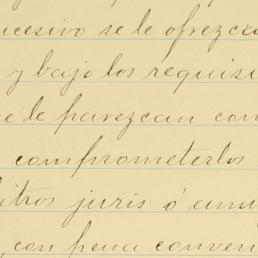 ucesivo se le ofrezca
y bajo los requisi
e le parezcan con
comprometerlos
itros juris ó ami
, con pena conven